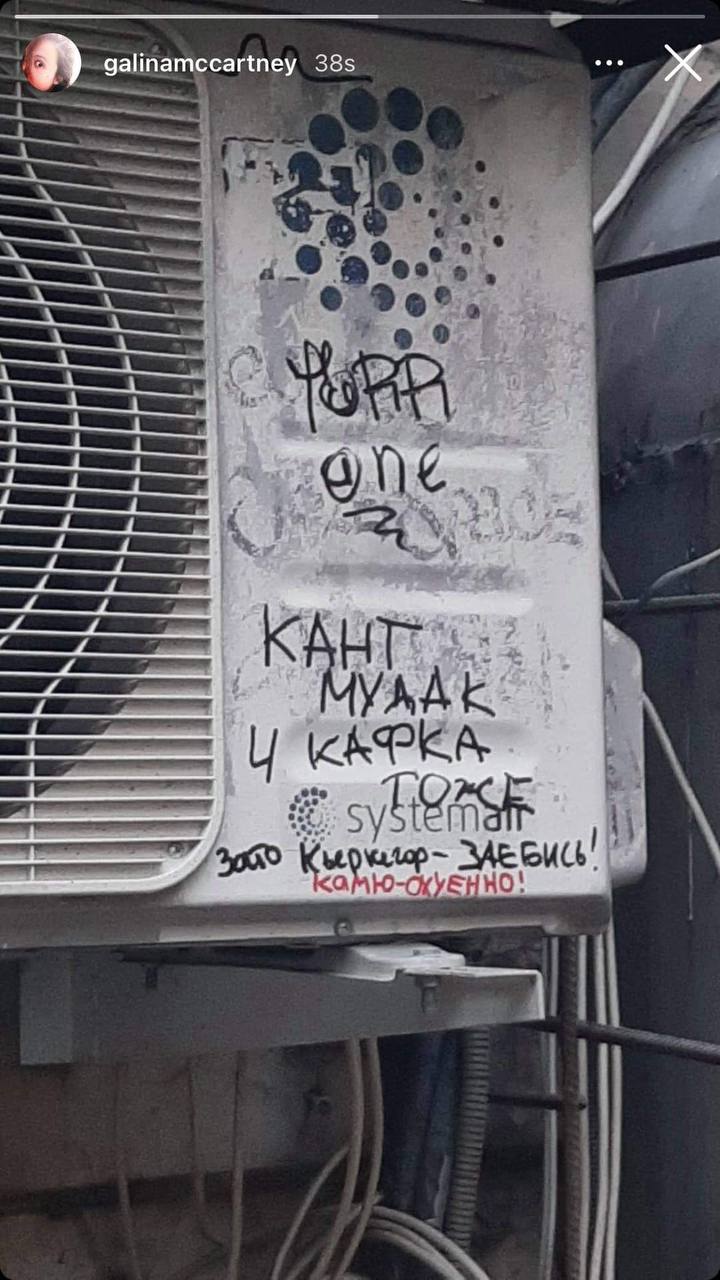 galinamccartney 38s
YORR
one
КАНТ
МУДАК
И КАФКА
ТОЖЕ
systemair
Зато Кьеркегор - ЗАЕБИСЬ!
КАМЮ-ОХУЕННО!